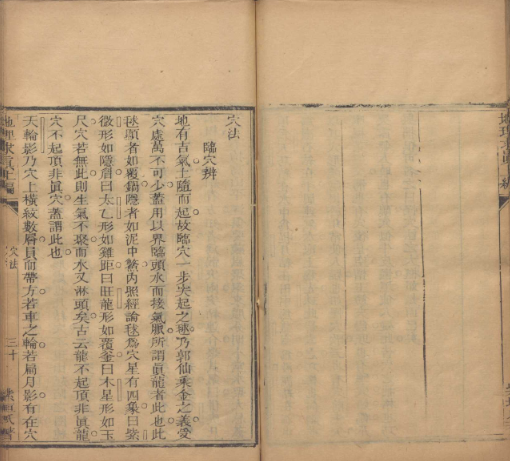 穴法
臨穴辨
地有吉氣土隨而起故臨穴一步突起之毬乃郭仙乘金之義爱
穴處萬不可少蓋用以界臨頭水而接氣脈所謂真龍者此也此
毬顯者如覆鍋隱者如泥中鱉内照經論毬為穴星有四象曰紫
微形如隱眉曰太乙形如雞距曰旺龍形如覆釜曰木星形如玉
尺穴若無此則生氣不聚而水又淋頭矣古云龍不起頂非眞龍
穴不起頂非眞穴蓋謂此也
天輪影乃穴上橫紋數層員而帶方若車之輪若扁月影有在穴
穴法
三十